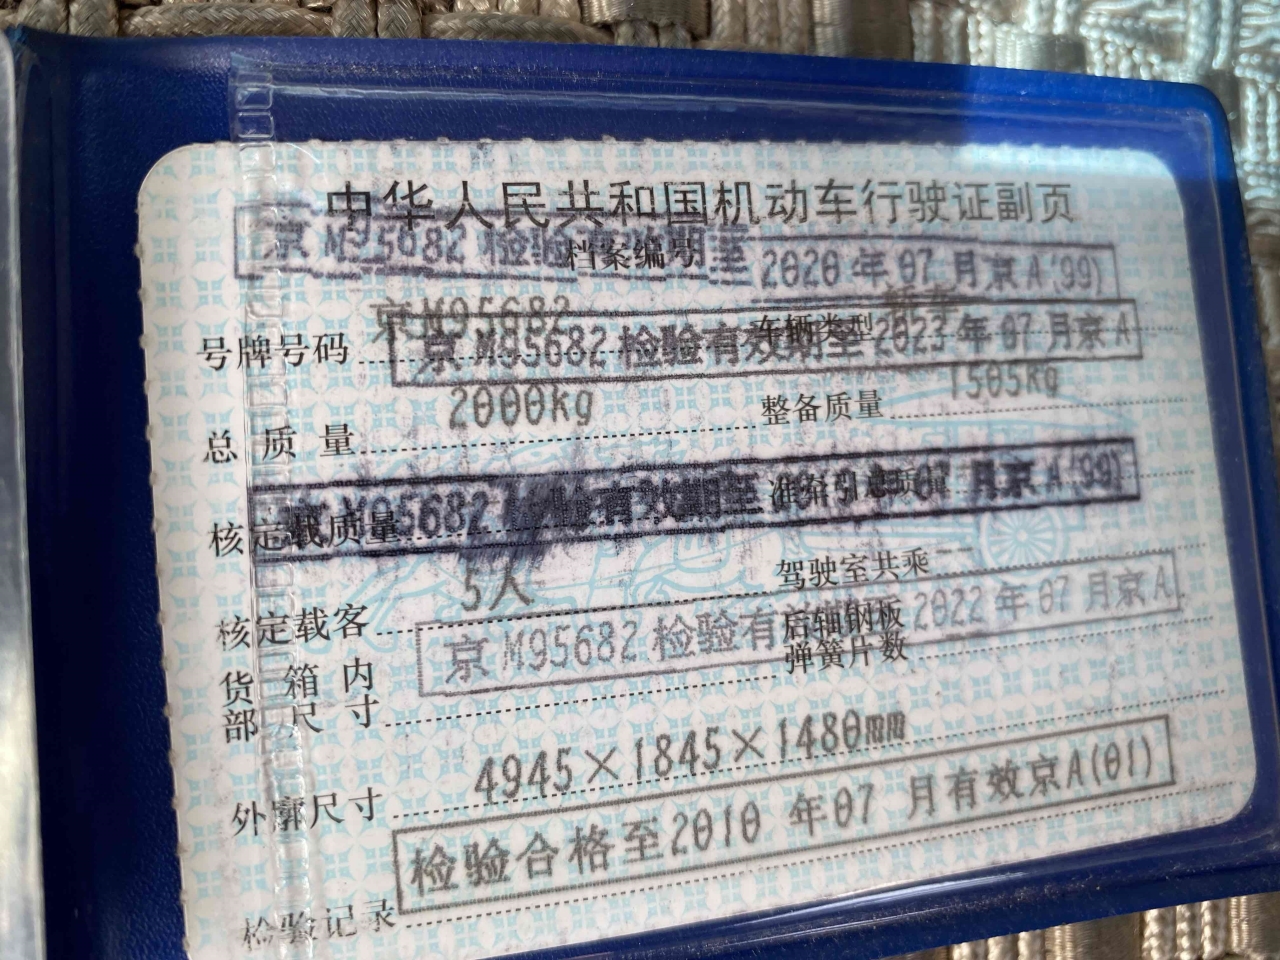 中华人民共和国机动车行驶证副页
京M95682 检验有效期至2020年07月京A(99)
档案编号
京M95682
号牌号码
车辆类型
京M95682 检验有效期至2023年07月京A
总质量 2000kg 整备质量 1505kg
京M95682 检验有效期至 07月京A(99)
核定载质量 准牵引总质量
核定载客 5人 驾驶室共乘 --
京M95682 检验有 2022年07月京A
货箱内部尺寸
后轴钢板弹簧片数
外廓尺寸 4945×1845×1480mm
检验合格至2010年07月有效京A(01)
检验记录